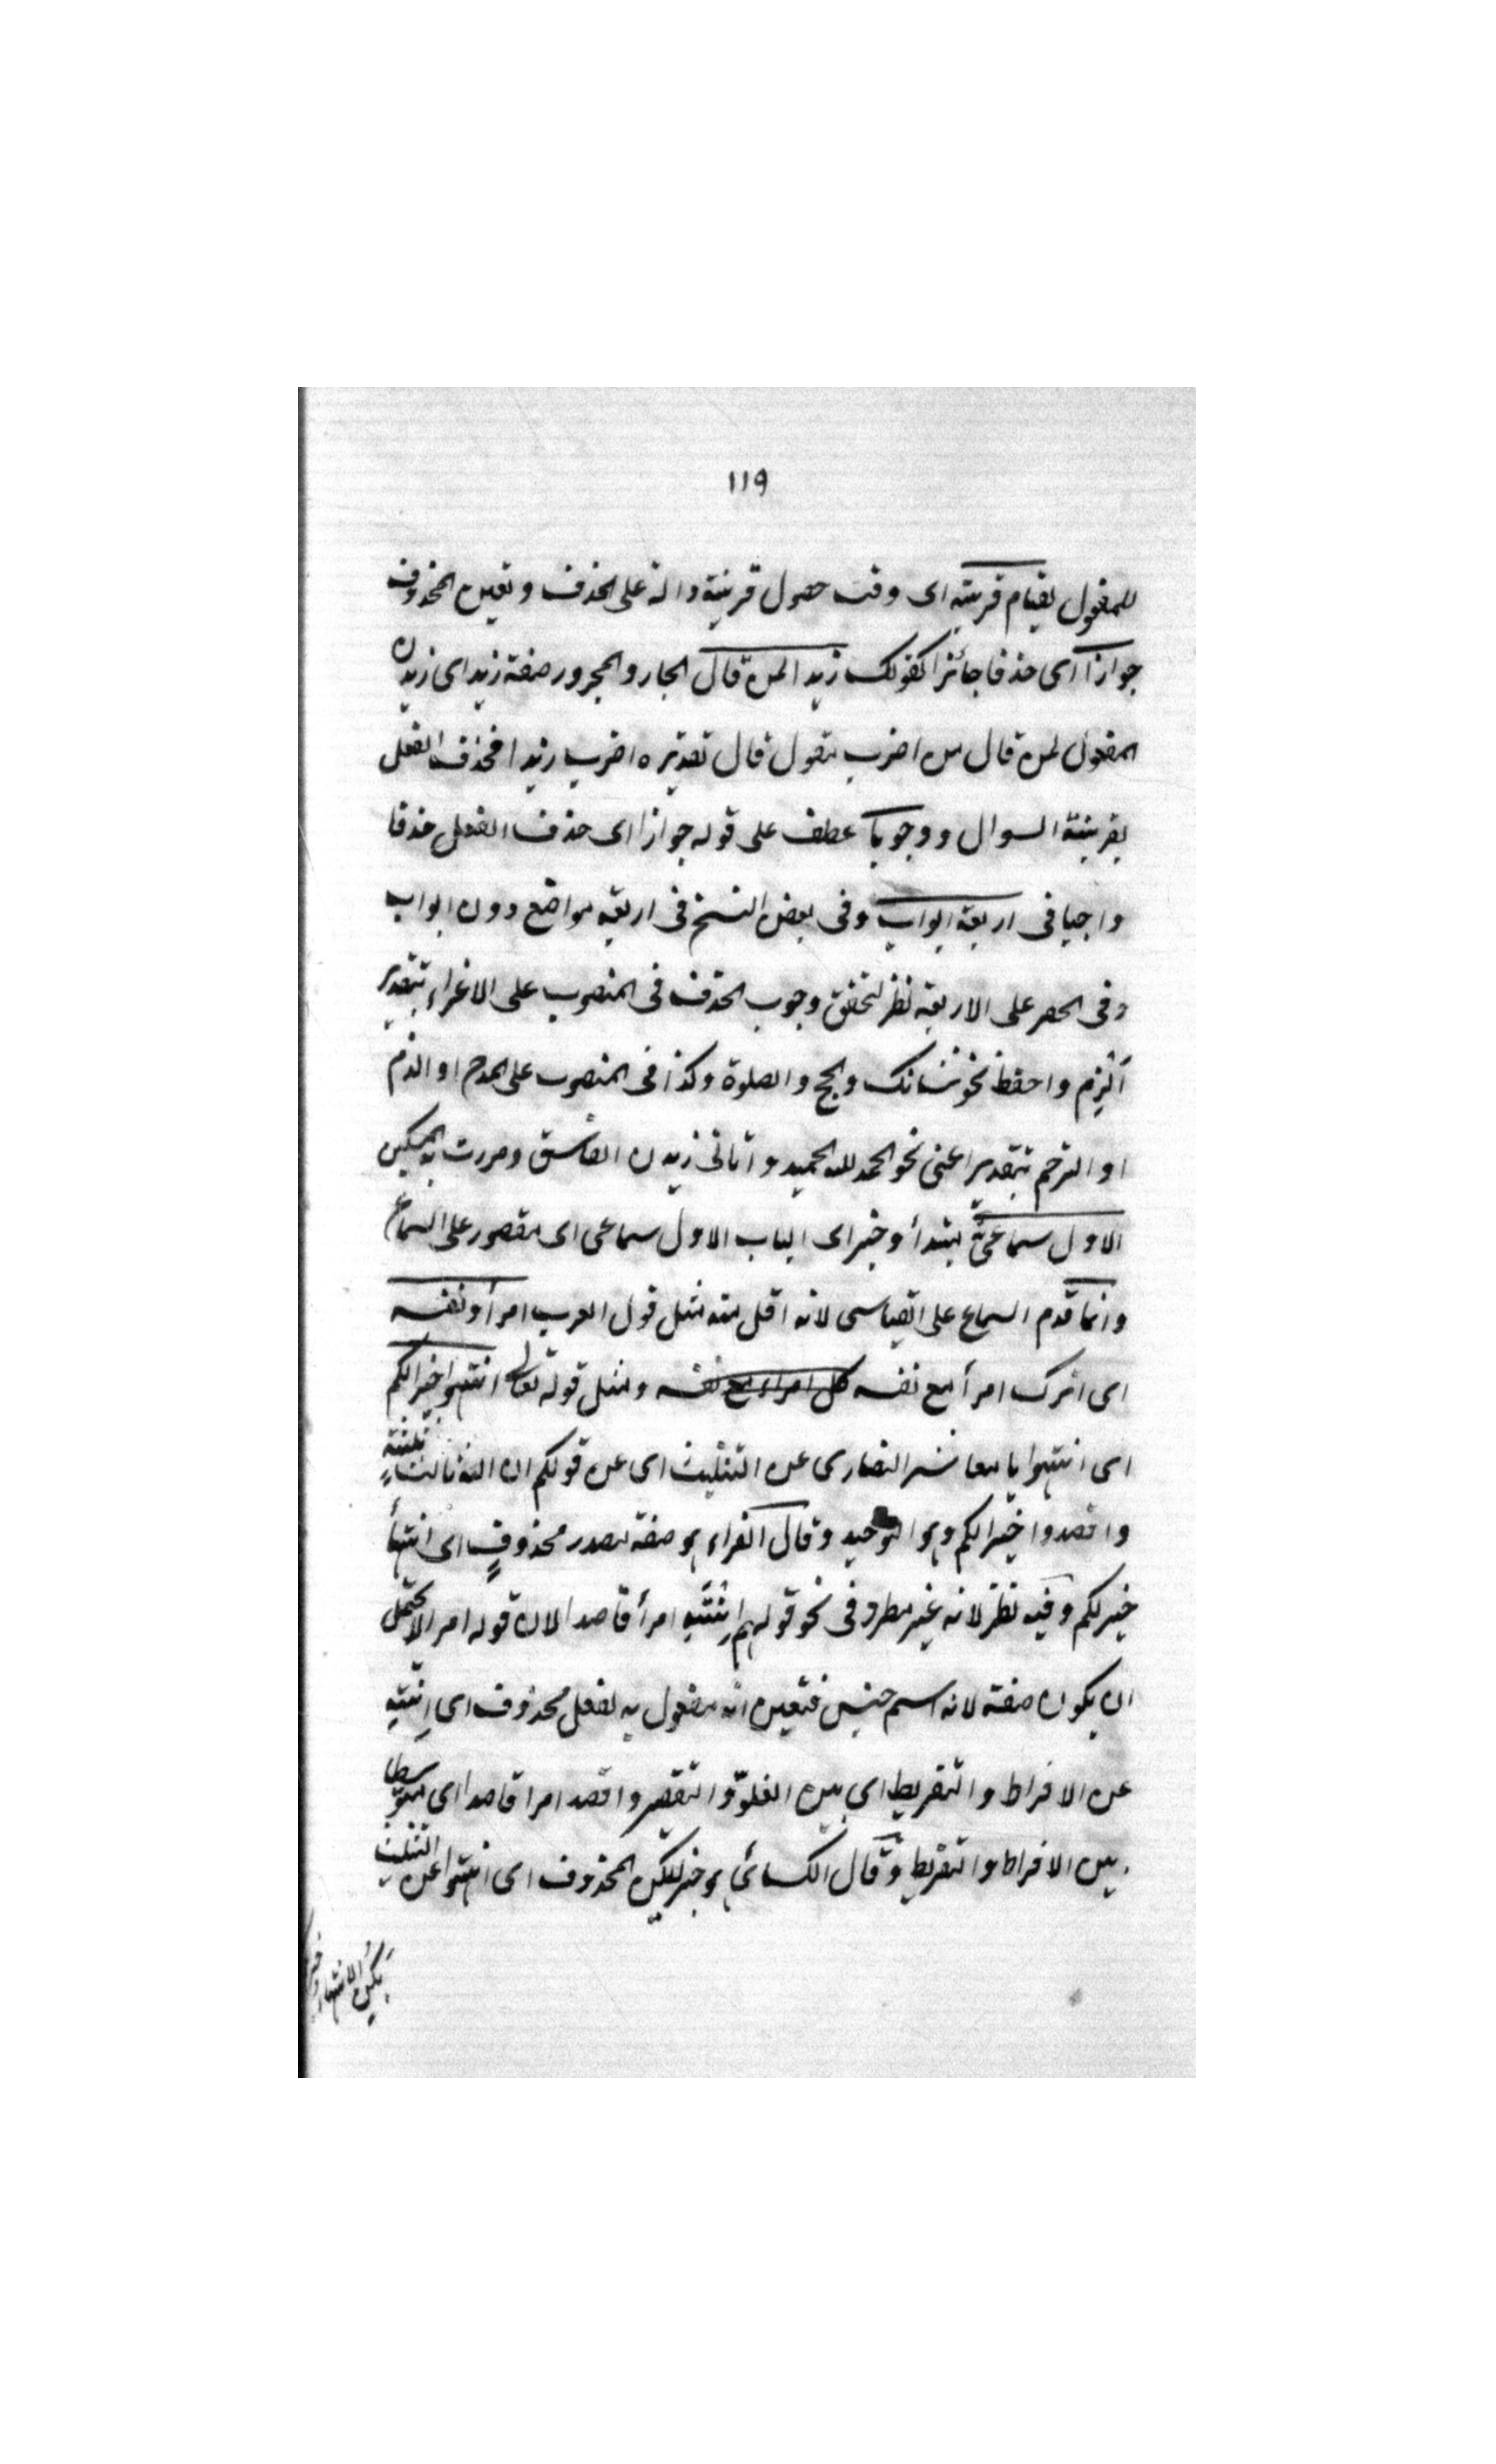 ١١٩
للمفعول لقيام قرينة اى وقت حصول قرينة دالة على الحذف وتعين المحذوف
جوازا اى حذفا جائزا كقولك زيد المن قال الجار والمجرور صفة زيد اى زيدن
المقول لمن قال من اضرب مقول قال تقديره اضرب زيدا فحذف الفعل
بقرينة السوال ووجوبا عطف على قوله جوازا اى حذف الفعل حذفا
واجبا فى اربعة ابواب وفى بعض النسخ فى اربعة مواضع دون ابواب
وفى الحصر على الاربعة نظر لتحقق وجوب الحذف فى المنصوب على الاغراء بتقدير
ألزم واحفظ نحو شانك والحج والصلوة وكذا فى المنصوب على المدح او الذم
او الترحم بتقدير اعنى نحو الحمد لله الحميد واتانى زيدن الفاسق ومررت به المسكين
الاول سماعىٌّ مبتدأ وخبر اى الباب الاول سماعى اى مقصور على السماع
وانما قدم السماع على القياسى لانه اقل منه مثل قول العرب امرأ ونفسه
اى اترك امرأ مع نفسه كل امراء مع نفسه ومثل قوله تعالى انتهوا خيرا لكم
اى انتهوا يا معاشر النصارى عن التثليث اى عن قولكم ان الله ثالث ثلثة
واقصدوا خيرا لكم وهو التوحيد وقال الفراء هو صفة لمصدر محذوفٍ اى انتهاأ
خير لكم وفيه نظر لانه غير مطرد فى نحو قولهم اِنْتَهِ امرأ قاصدا لان قوله امرا لا يحتمل
ان يكون صفة لانه اسم جنس فتعين انه مفعول به لفعل محذوف اى انته
عن الافراط والتفريط اى بين الغلوّ والتقصير واقصد امرا قاصدا اى متوسطا
بين الافراط والتفريط وقال الكسائى هو خبر ليكن المحذوف اى انتهوا عن التثليث
يكن الانتهاء خيرا